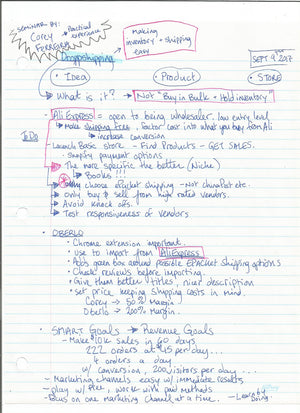 SEMINAR BY:
COREY
FERREIRA
Practical
experience
making
inventory + shipping
easy
Dropshipping
SEPT 9TH 2017
Idea
Product
STORE
What is it? → Not "Buy in Bulk + Hold inventory"
Ali Express = open to being wholesaler, low entry level
Make shipping free, factor cost into what you buy from Ali
increase conversion
To Do
Launch Basic store - Find Products - GET SALES.
Shopify payment options
The more specific the better (Niche)
Books!!!
Only choose epacket shipping - Not china post etc.
Only buy & sell from high rated vendors.
Avoid knock offs.
Test responsiveness of vendors
OBERLO
Chrome extension important.
use to import from AliExpress
Adds green box around possible EPACKET shipping options
Check reviews before importing.
Give them better titles, nicer description
Set price keeping shipping costs in mind.
Corey → 50% Margin
Oberlo → 200% Margin.
SMART Goals → Revenue Goals
Make $10K sales in 60 days
222 orders at $45 per day...
4 orders a day
w/ conversion, 200 visitors per day...
Marketing channels easy w/ immediate results
play w/ free, work with paid methods
Focus on one marketing channel at a time.
- Learn by
Doing